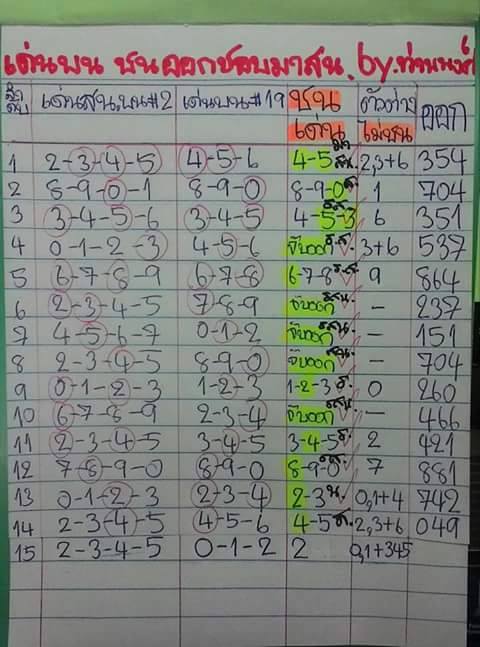 เด่นพบ ชนออกชอบมาสน. by.ท่านนงค์
ลำดับ เด่นสน.บน#2 เด่นบน#19 ชนเด่น ตัวต่างไม่ชน ออก
1 2-3-4-5 4-5-6 4-5 2,3+6 354
2 8-9-0-1 8-9-0 8-9-0 1 704
3 3-4-5-6 3-4-5 4-5-3 6 351
4 0-1-2-3 4-5-6 จับออก 3+6 537
5 6-7-8-9 6-7-8 6-7-8 9 864
6 2-3-4-5 7-8-9 จับออก - 237
7 4-5-6-7 0-1-2 จับออก - 151
8 2-3-4-5 8-9-0 จับออก - 704
9 0-1-2-3 1-2-3 1-2-3 0 260
10 6-7-8-9 2-3-4 จับออก - 466
11 2-3-4-5 3-4-5 3-4-5 2 421
12 7-8-9-0 8-9-0 8-9-0 7 881
13 0-1-2-3 2-3-4 2-3 น. 0,1+4 742
14 2-3-4-5 4-5-6 4-5 2,3+6 049
15 2-3-4-5 0-1-2 2 0,1+345